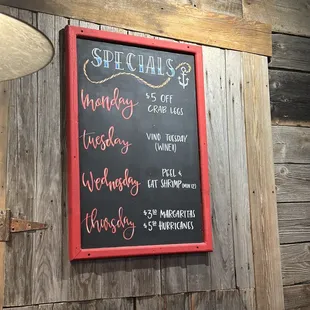 SPECIALS
Monday
$5 OFF
CRAB LEGS
Tuesday
VINO TUESDAY
(WINE!)
Wednesday
PEEL &
EAT SHRIMP
Thursday
MARGARITAS
HURRICANES